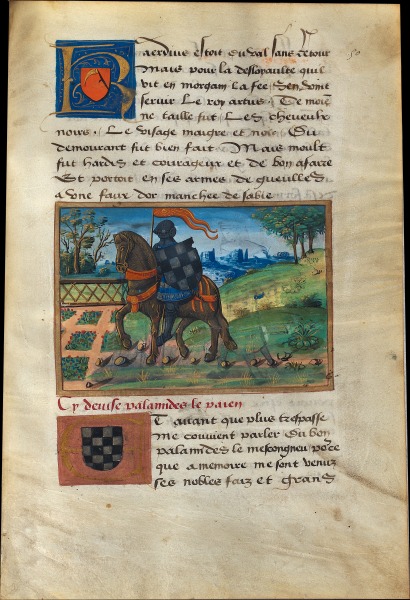 Raerdius estoit du val sans retour
Mais pour la desloyaulte quil
vit en morgain la fee sen vint
servir Le roy artus. De moie
ne taille fut Les cheveulx
noirs. Le visage maigre et noir Du
demourant fut bien fait Mais moult
fut hardis et courageux et de bon afaire
Et portoit en ses armes de gueulles
a une faux dor manchee de sable
Cy devise palamides le paien
Et avant que plus trespasse
me convient parler du bon
palamides le mescongneu
que a memoire me sont venuz
ses nobles faiz et grans